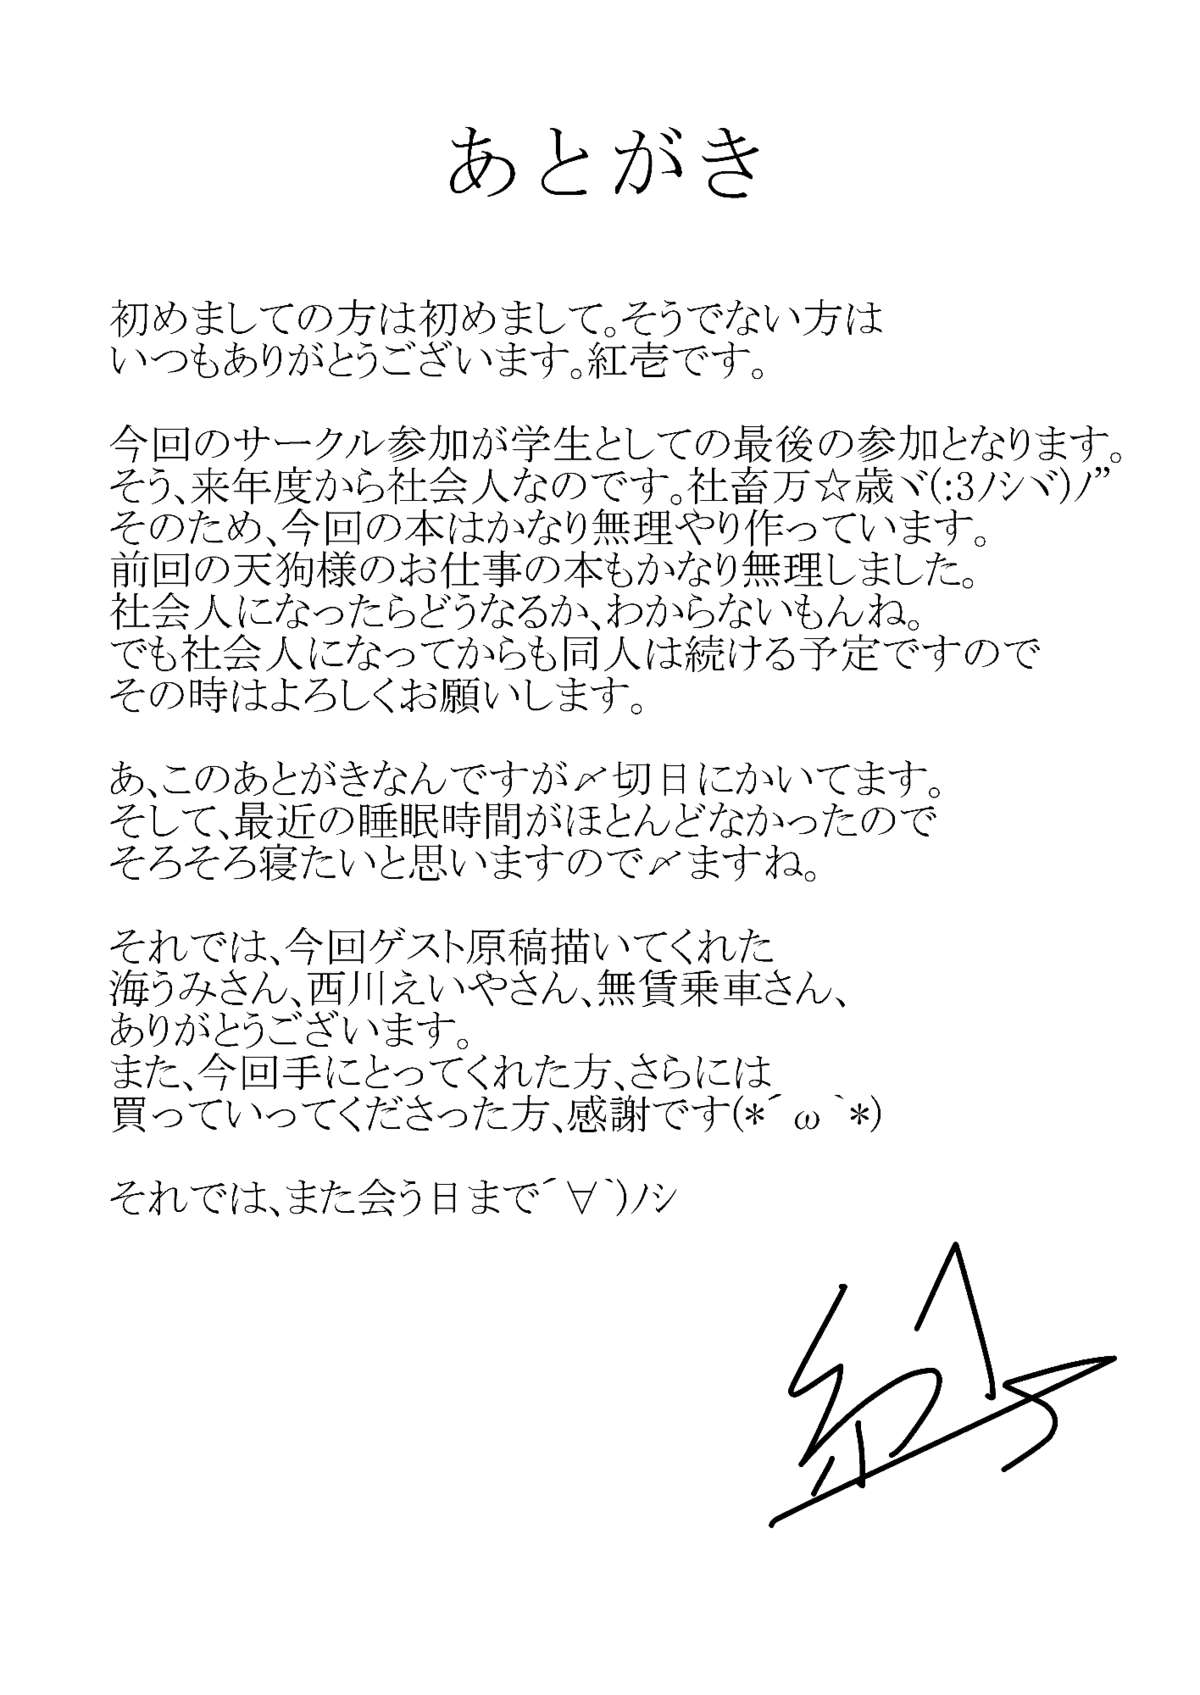 あとがき
初めましての方は初めまして。そうでない方は
いつもありがとうございます。紅壱です。
今回のサークル参加が学生としての最後の参加となります。
そう、来年度から社会人なのです。社畜万☆歳ヾ(:3ﾉシヾ)ﾉ”
そのため、今回の本はかなり無理やり作っています。
前回の天狗様のお仕事の本もかなり無理しました。
社会人になったらどうなるか、わからないもんね。
でも社会人になってからも同人は続ける予定ですので
その時はよろしくお願いします。
あ、このあとがきなんですが〆切日にかいてます。
そして、最近の睡眠時間がほとんどなかったので
そろそろ寝たいと思いますので〆ますね。
それでは、今回ゲスト原稿描いてくれた
海うみさん、西川えいやさん、無賃乗車さん、
ありがとうございます。
また、今回手にとってくれた方、さらには
買っていってくださった方、感謝です(*´ω｀*)
それでは、また会う日まで´∀`)ﾉシ